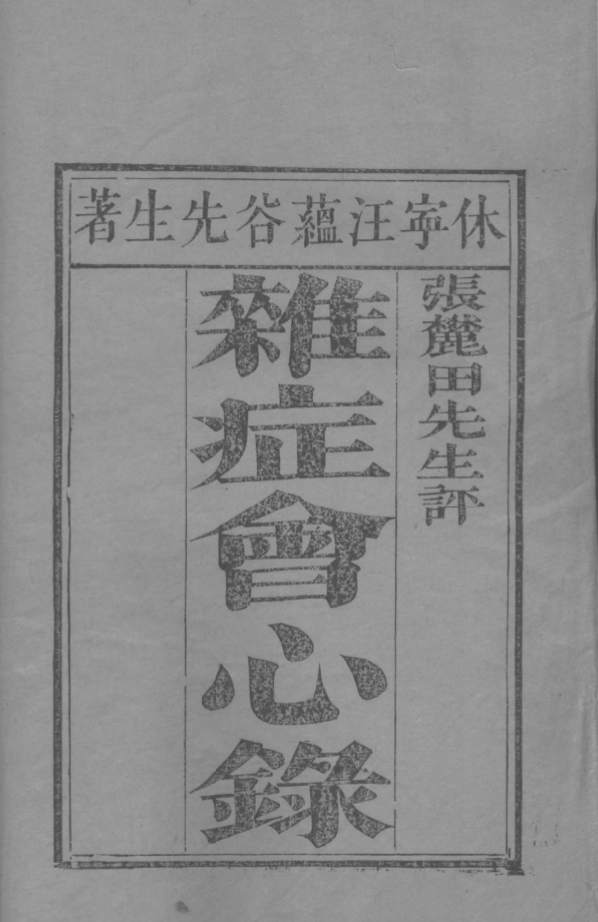 休寧汪蘊谷先生著
張麓田先生評
雜症會心錄